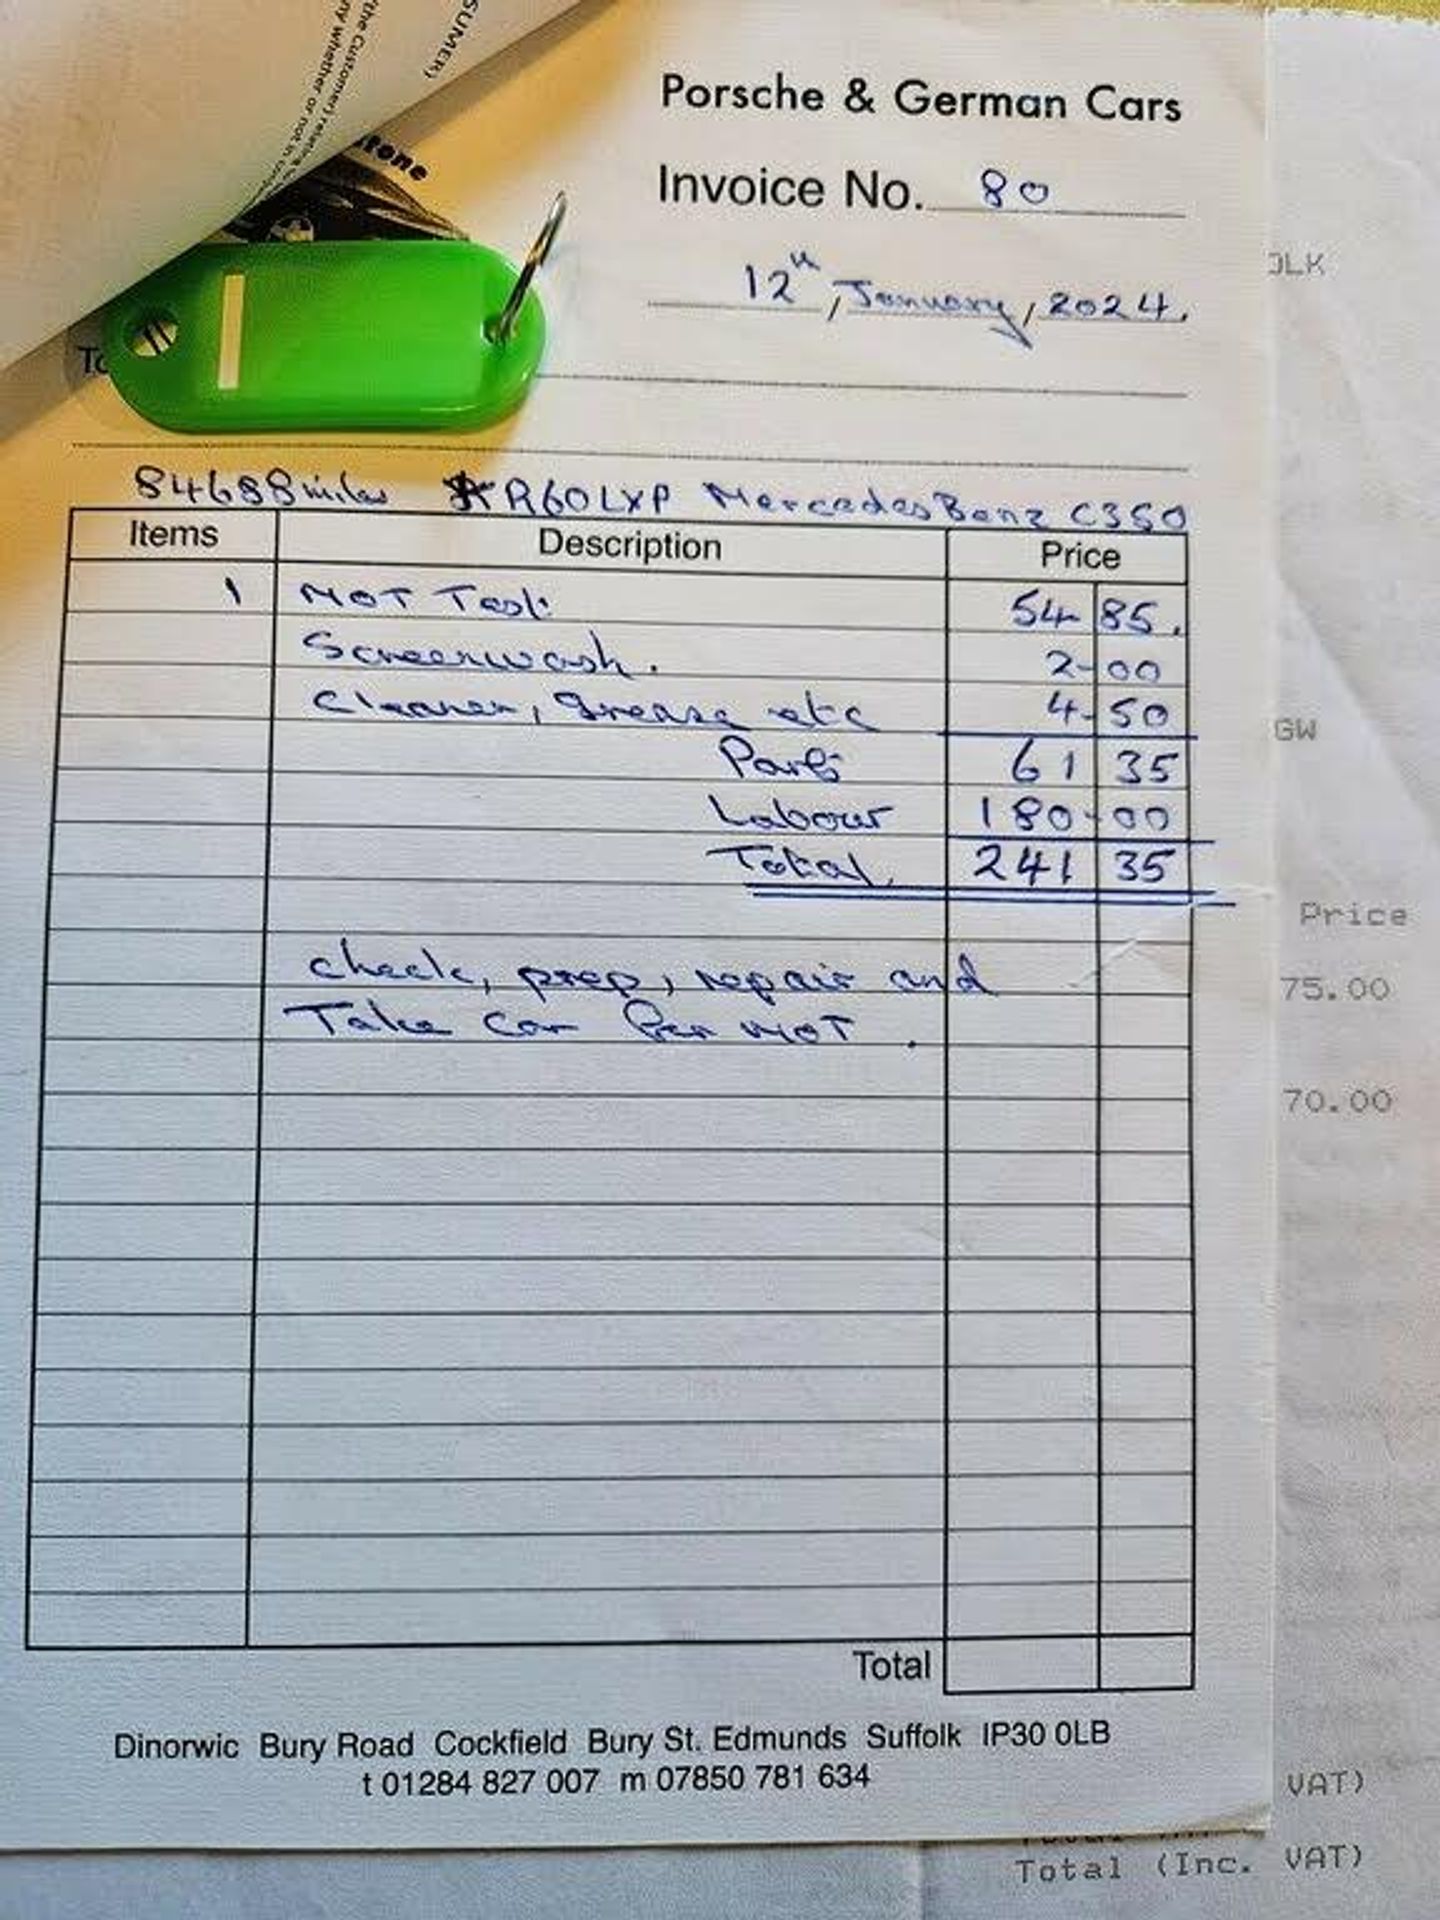 SUMER)
the Customer) relating
ny whether or not in
stone
Porsche & German Cars
Invoice No. 80
12th, January, 2024.
To
84688 miles R60LXP Mercedes Benz C350
Items Description Price
1 MOT Test 54 85.
Screenwash. 2-00
Cleaner, grease etc 4-50
Parts 61 35
Labour 180-00
Total, 241 35
check, prep, repair and
Take car for MOT.
Total
Dinorwic Bury Road Cockfield Bury St. Edmunds Suffolk IP30 0LB
t 01284 827 007 m 07850 781 634
OLK
GW
Price
75.00
70.00
VAT)
Total (Inc. VAT)